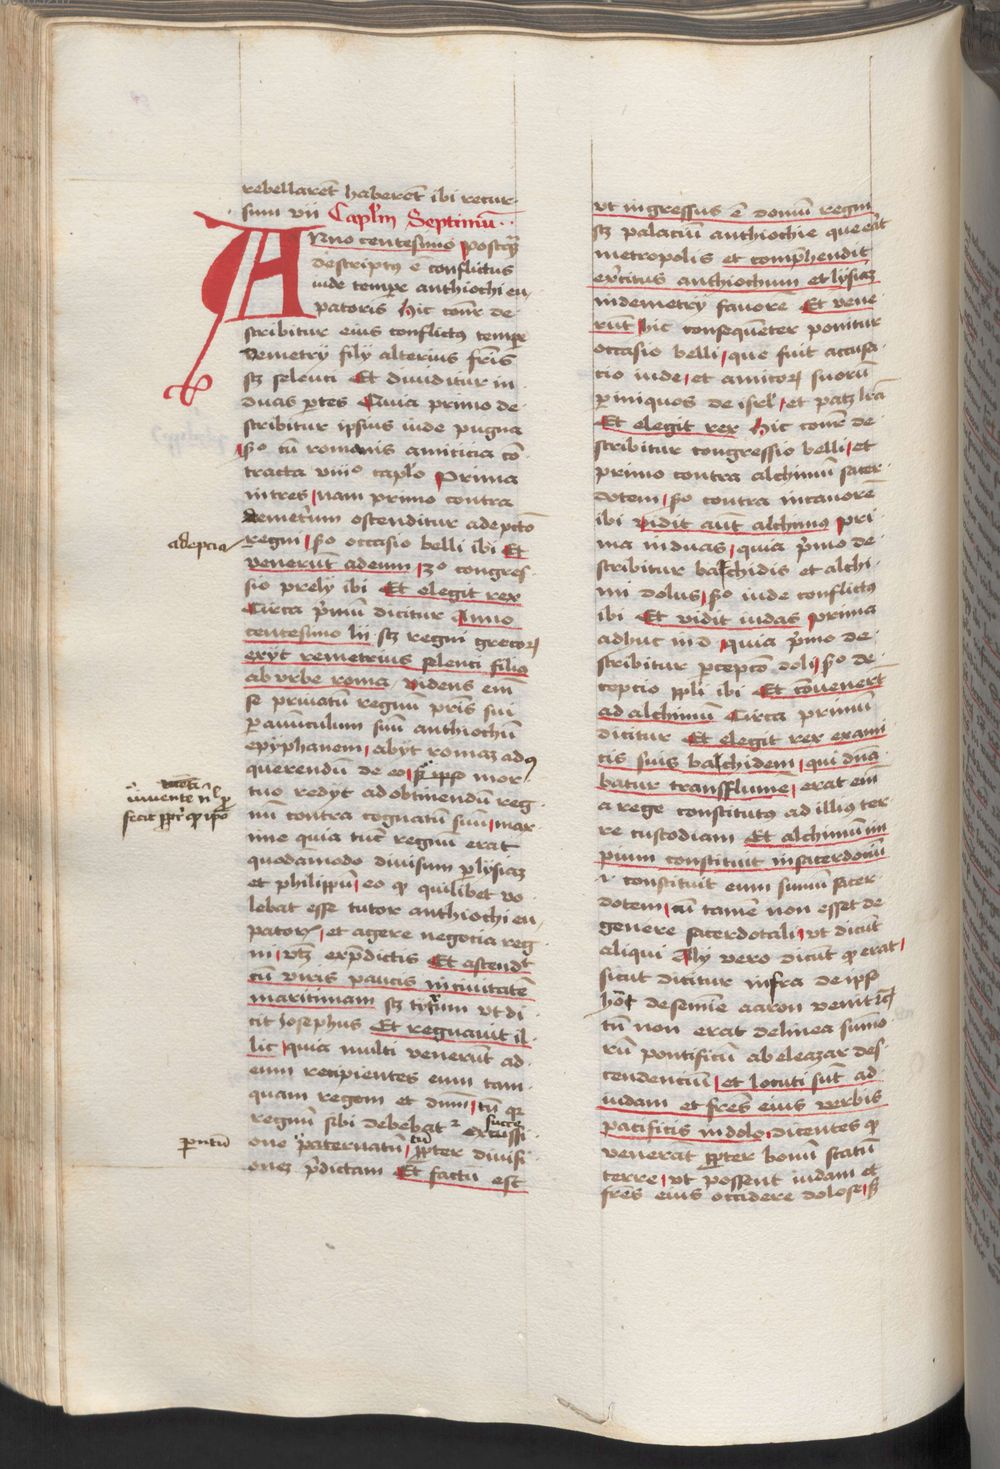 rebellarēt haberēt ibi recur
sum vii Caplm Septimū
Anno centesimo postq̄
descriptꝰ ē conflictus
iude tempore anthiochi eu
patoris Hic conr̄ de
scribitur eius conflictꝰ tempore
Demetrij filij alterius fr̄is
sꝫ seleuci Et diuiditur in
duas ꝑtes Quia primo de
scribitur ipsius iude pugna
s̄o cū romanis amicicia cō
tracta viiio caplo Prima
in tres nam primo contra
demetrium ostenditur adepcio
regni s̄o occasio belli ibi Et
venerūt ad eum 3o congres
sio prelij ibi Et elegit rex
Circa p̄mū dicitur Anno
centesimo lii sꝫ regni grecoꝝ
exijt remetrius seleuci filiꝰ
ab vrbe roma Videns em̄
se priuatū regnū pr̄is sui
ꝑ auunculum suū anthiochū
epyphanem abijt romaꝫ ad
querendū de eo ipso mor
tuo redyt ad obtinendū reg
nū contra cognatū suū max
ime quia tūc regnū erat
quodāmodo diuisum ꝑ lysiaꝫ
et philippū eo qꝫ quilibet vo
lebat esse tutor anthiochi eu
patoris et agere negotia reg
ni vtꝫ exp̄dictis Et ascendt
cū viris paucis in ciuitatē
maritimam sꝫ tyrum vt di
cit Iosephus Et regnauit il
lic quia multi venerūt ad
eum recipientes eum tam
quam regem et dnm̄ tū qꝛ
regnū sibi debebatr ex succe
one paternatū tū ꝓpter diuisi
onez p̄dictam Et factū est
adepcia
ꝑ ntū
vt ingressus ē domū regni
sꝫ palaciū anthiochie que erāt
metropolis et comp̄hendit
exrcitus anthiochum et lysiaꝫ
in demetrij fauorē Et vene
rūt Hic consequēter ponitur
occasio belli que fuit accusa
cio iude et amicoꝝ suorū
ꝑ iniquos de isrl et patꝫ lr̄a
Et elegit rex Hic conr̄ de
scribitur congressio belli et
primo contra alchimū sacer
dotem s̄o contra incauorē
ibi Vidit aūt alchimꝰ Pri
ma in duas quia p̄mo de
scribitur balchidis et alchi
mi dolus s̄o iude conflictꝰ
ibi Et vidit iudas Prima
adhuc in d quia p̄mo de
scribitur ꝑcepcō doli s̄o de
cepcio ppli ibi Et cōuenert
ad alchimū Circa primū
dicitur Et elegit rex ex ami
cis suis balchidem qui dnā
batur trans flumē erat em̄
a rege constitutꝰ ad illiꝰ ter
re custodiam Et alchimū im
pium constituit in sacerdociū
r constituit eum sumū sacer
dotem cū tamē non esset de
genere sacerdotali vt dicūt
aliqui Alij vero dicūt qꝫ erat
sicut dicitur infra de ipso
hō de semīe aaron venit
tū non erat de linea sumo
rū pontificū ab eleazar des
cendenciū et locuti sūt ad
iudam et fr̄es eius verbis
pacificis in dolo dicentes qꝫ
venerat ꝓpter bonū statū
terre vt possent iudam et
fr̄es eius occidere dolose